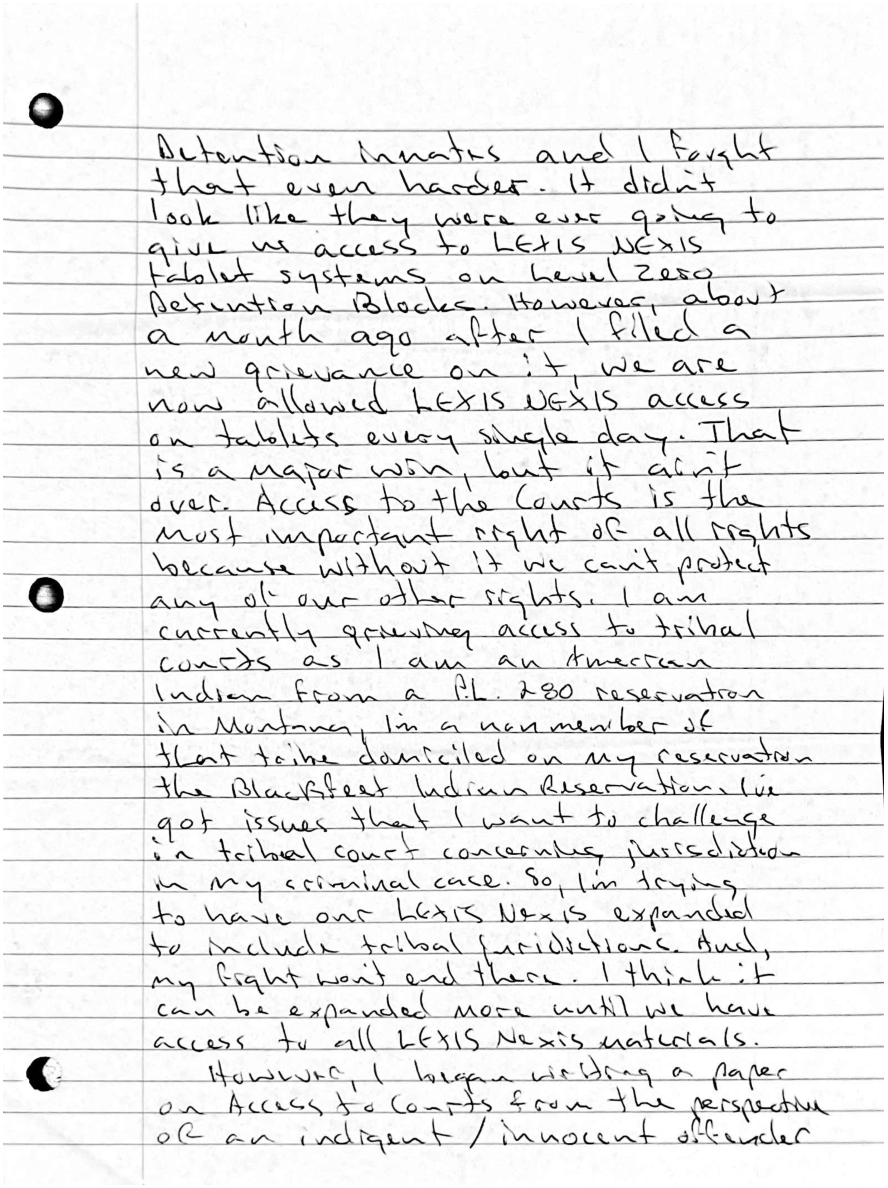 Detention inmates and I fought
that even harder. It didn't
look like they were ever going to
give us access to LEXIS NEXIS
tablet systems on Level Zero
Detention Blocks. However, about
a month ago after I filed a
new grievance on it, we are
now allowed LEXIS NEXIS access
on tablets every single day. That
is a major win, but it ain't
over. Access to the Courts is the
most important right of all rights
because without it we can't protect
any of our other rights. I am
currently grieving access to tribal
courts as I am an American
Indian from a P.L. 280 reservation
in Montana, I'm a nonmember of
that tribe domiciled on my reservation
the Blackfeet Indian Reservation. I've
got issues that I want to challenge
in tribal court concerning jurisdiction
in my criminal case. So, I'm trying
to have our LEXIS Nexis expanded
to include tribal juridictions. And,
my fight won't end there. I think it
can be expanded more until we have
access to all LEXIS Nexis materials.
However, I began writing a paper
on Access to Courts from the perspective
of an indigent / innocent offender